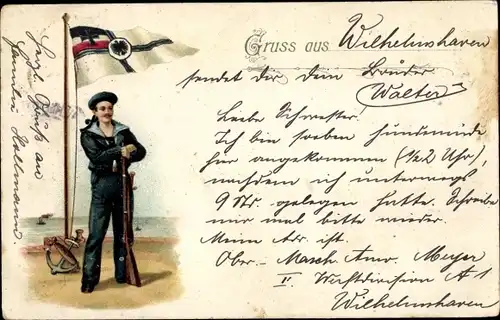 Gruss aus Wilhelmshaven
sendet dir dein Bruder
Walter
Liebe Schwester.
Ich bin soeben hundemüde
hier angekommen (½2 Uhr),
nachdem ich unterwegs
9 Str. gelegen hatte. Schreibe
mir mal bitte wieder.
Meine Adr. ist.
Ober.- Masch. Anw. Meyer
II Werftdivision A 1
Wilhelmshaven
Herzl. Gruß an
Familie